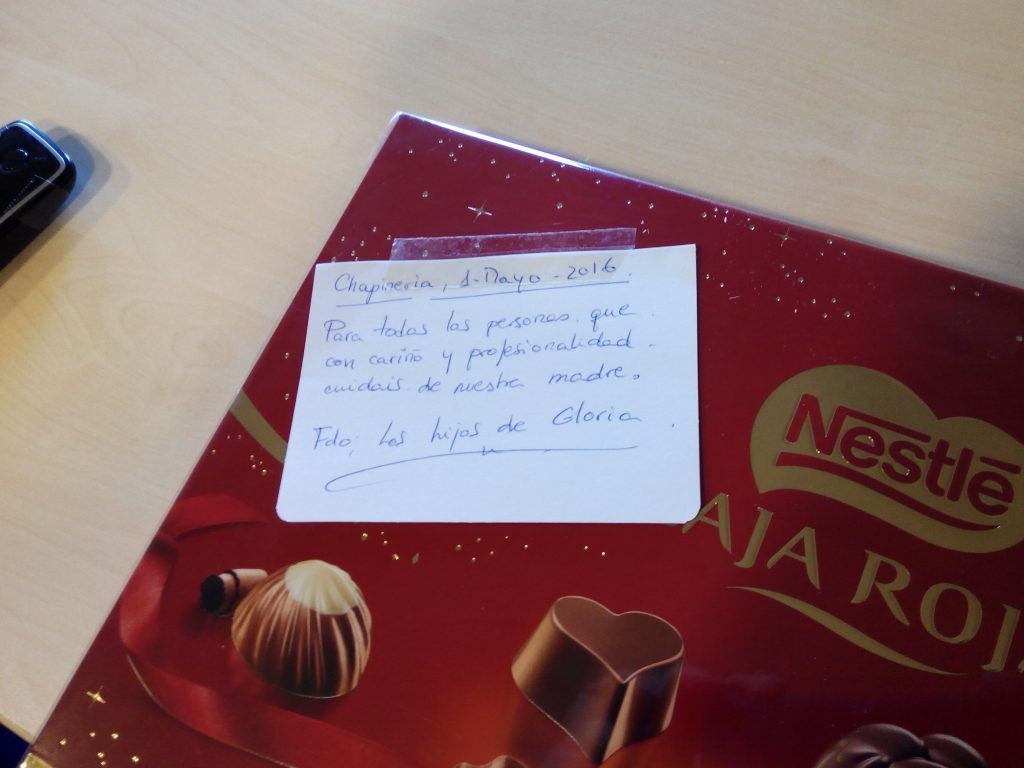 Chapineria, 1-Mayo-2016.
Para todas las personas que
con cariño y profesionalidad
cuidais de nuestra madre.
Fdo; Los hijos de Gloria
Nestlé
AJA ROJ